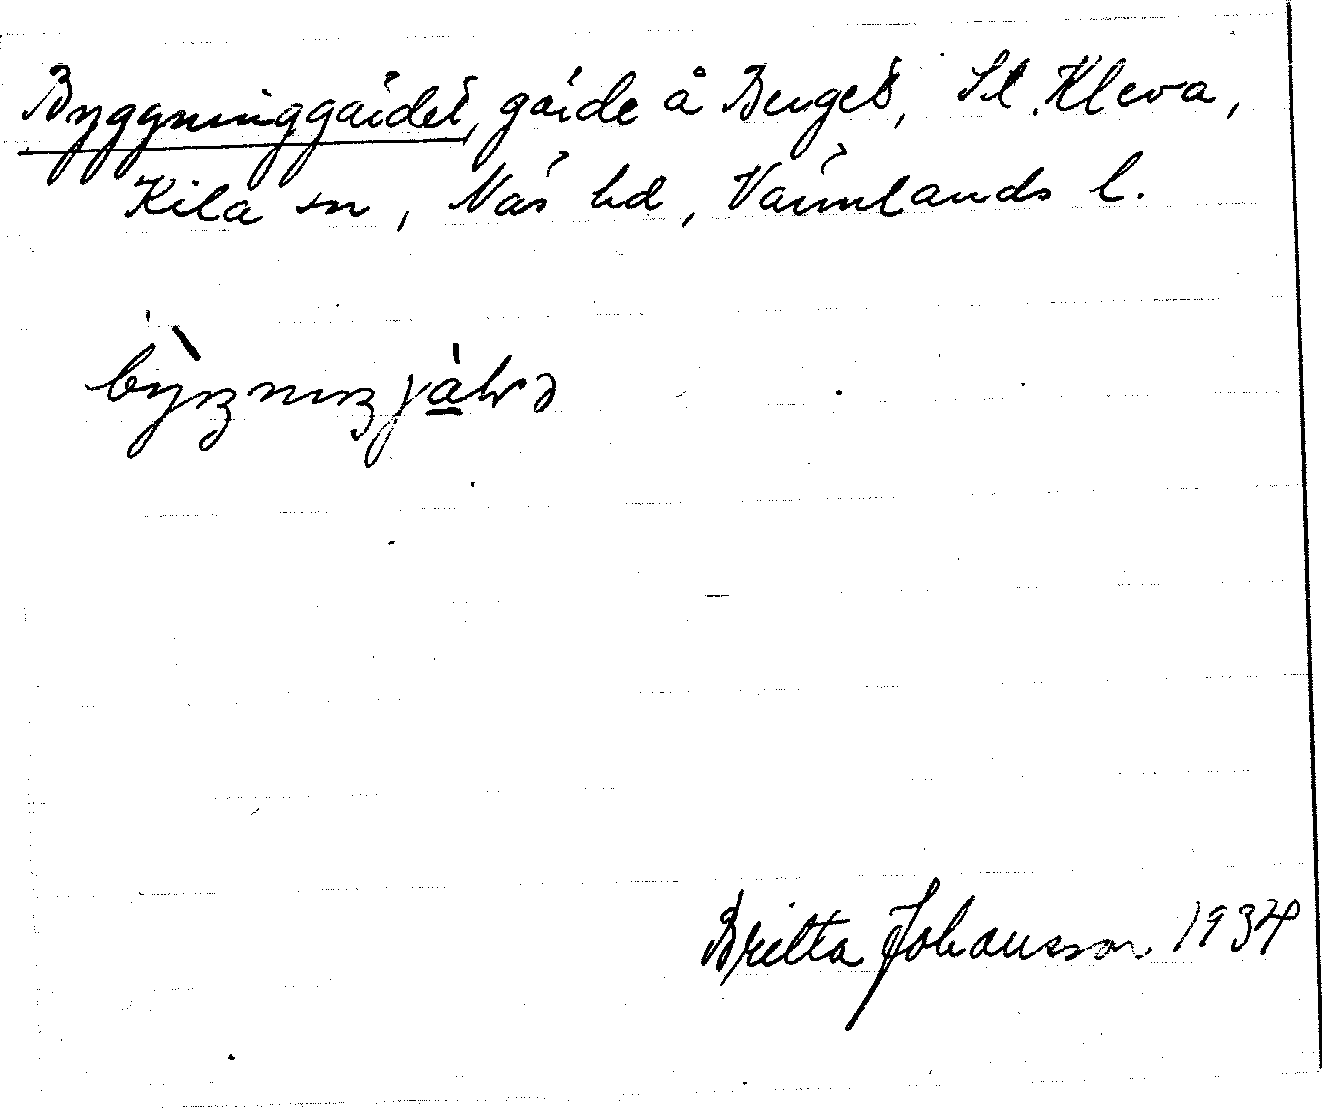 Byggninggärdet, gärde å Berget, St. Kleva,
Kila sn, Näs hd, Värmlands l.
Britta Johansson 1934